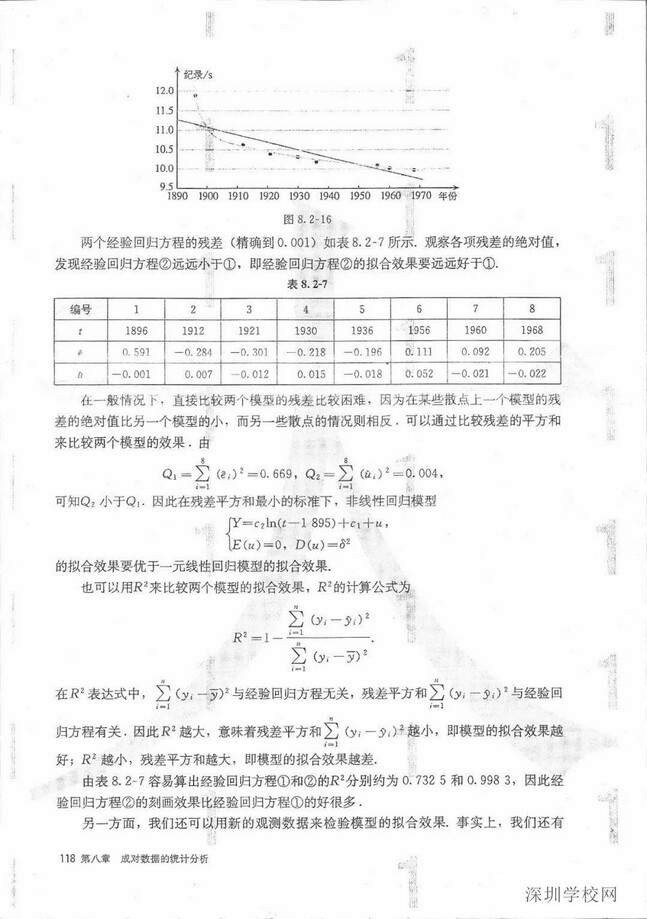 纪录/s
12.0
11.5
11.0
10.5
10.0
9.5
1890 1900 1910 1920 1930 1940 1950 1960 1970 年份
图 8.2-16
两个经验回归方程的残差（精确到0.001）如表8.2-7所示．观察各项残差的绝对值，
发现经验回归方程②远远小于①，即经验回归方程②的拟合效果要远远好于①．
表 8.2-7
编号 1 2 3 4 5 6 7 8
t 1896 1912 1921 1930 1936 1956 1960 1968
ê 0.591 −0.284 −0.301 −0.218 −0.196 0.111 0.092 0.205
û −0.001 0.007 −0.012 0.015 −0.018 0.052 −0.021 −0.022
在一般情况下，直接比较两个模型的残差比较困难，因为在某些散点上一个模型的残
差的绝对值比另一个模型的小，而另一些散点的情况则相反．可以通过比较残差的平方和
来比较两个模型的效果．由
Q₁=∑_{i=1}^{8}(ê_i)²=0.669，Q₂=∑_{i=1}^{8}(û_i)²=0.004，
可知Q₂小于Q₁．因此在残差平方和最小的标准下，非线性回归模型
{Y=c₂ln(t−1 895)+c₁+u，
E(u)=0，D(u)=δ²
的拟合效果要优于一元线性回归模型的拟合效果．
也可以用R²来比较两个模型的拟合效果，R²的计算公式为
R²=1−∑_{i=1}^{n}(y_i−ŷ_i)²/∑_{i=1}^{n}(y_i−ȳ)²．
在R²表达式中，∑_{i=1}^{n}(y_i−ȳ)²与经验回归方程无关，残差平方和∑_{i=1}^{n}(y_i−ŷ_i)²与经验回
归方程有关．因此R²越大，意味着残差平方和∑_{i=1}^{n}(y_i−ŷ_i)²越小，即模型的拟合效果越
好；R²越小，残差平方和越大，即模型的拟合效果越差．
由表8.2-7容易算出经验回归方程①和②的R²分别约为0.732 5和0.998 3，因此经
验回归方程②的刻画效果比经验回归方程①的好很多．
另一方面，我们还可以用新的观测数据来检验模型的拟合效果．事实上，我们还有
118 第八章 成对数据的统计分析
深圳学校网